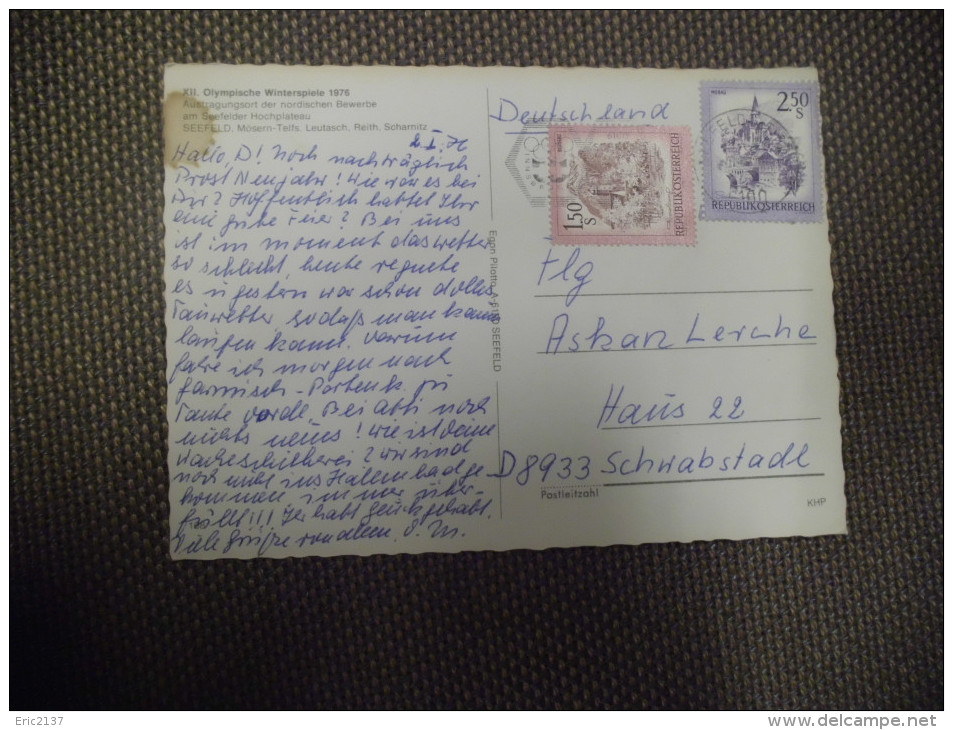 XII. Olympische Winterspiele 1976
Austragungsort der nordischen Bewerbe
am Seefelder Hochplateau
SEEFELD, Mösern-Telfs, Leutasch, Reith, Scharnitz
2.I.76
Hallo, D! Noch nachträglich
Prost Neujahr! Wie war es bei
Dir? Hoffentlich hattet Ihr
eine gute Feier? Bei uns
ist im moment das wetter
so schlecht, heute regnete
es u gestern war schon dolles
Tauwetter, sodaß man kaum
laufen kann. Darum
fahre ich morgen nach
Garmisch-Partenk. zu
Tante. Bei noch
nichts neues! Wie ist deine
Wacheschieberei? Wir sind
noch nicht ins Hallenbad ge
kommen, immer über-
füllt!!! Ihr habt Glück gehabt.
Viele Grüße von allem. M.
Egon Pilotto, A-6100 SEEFELD
Deutschland
1.50
S
REPUBLIK ÖSTERREICH
2.50
S
REPUBLIK ÖSTERREICH
Flg
Askan Lerche
Haus 22
D8933 Schwabstadl
Postleitzahl
KHP
Eric2137
delcampe.net